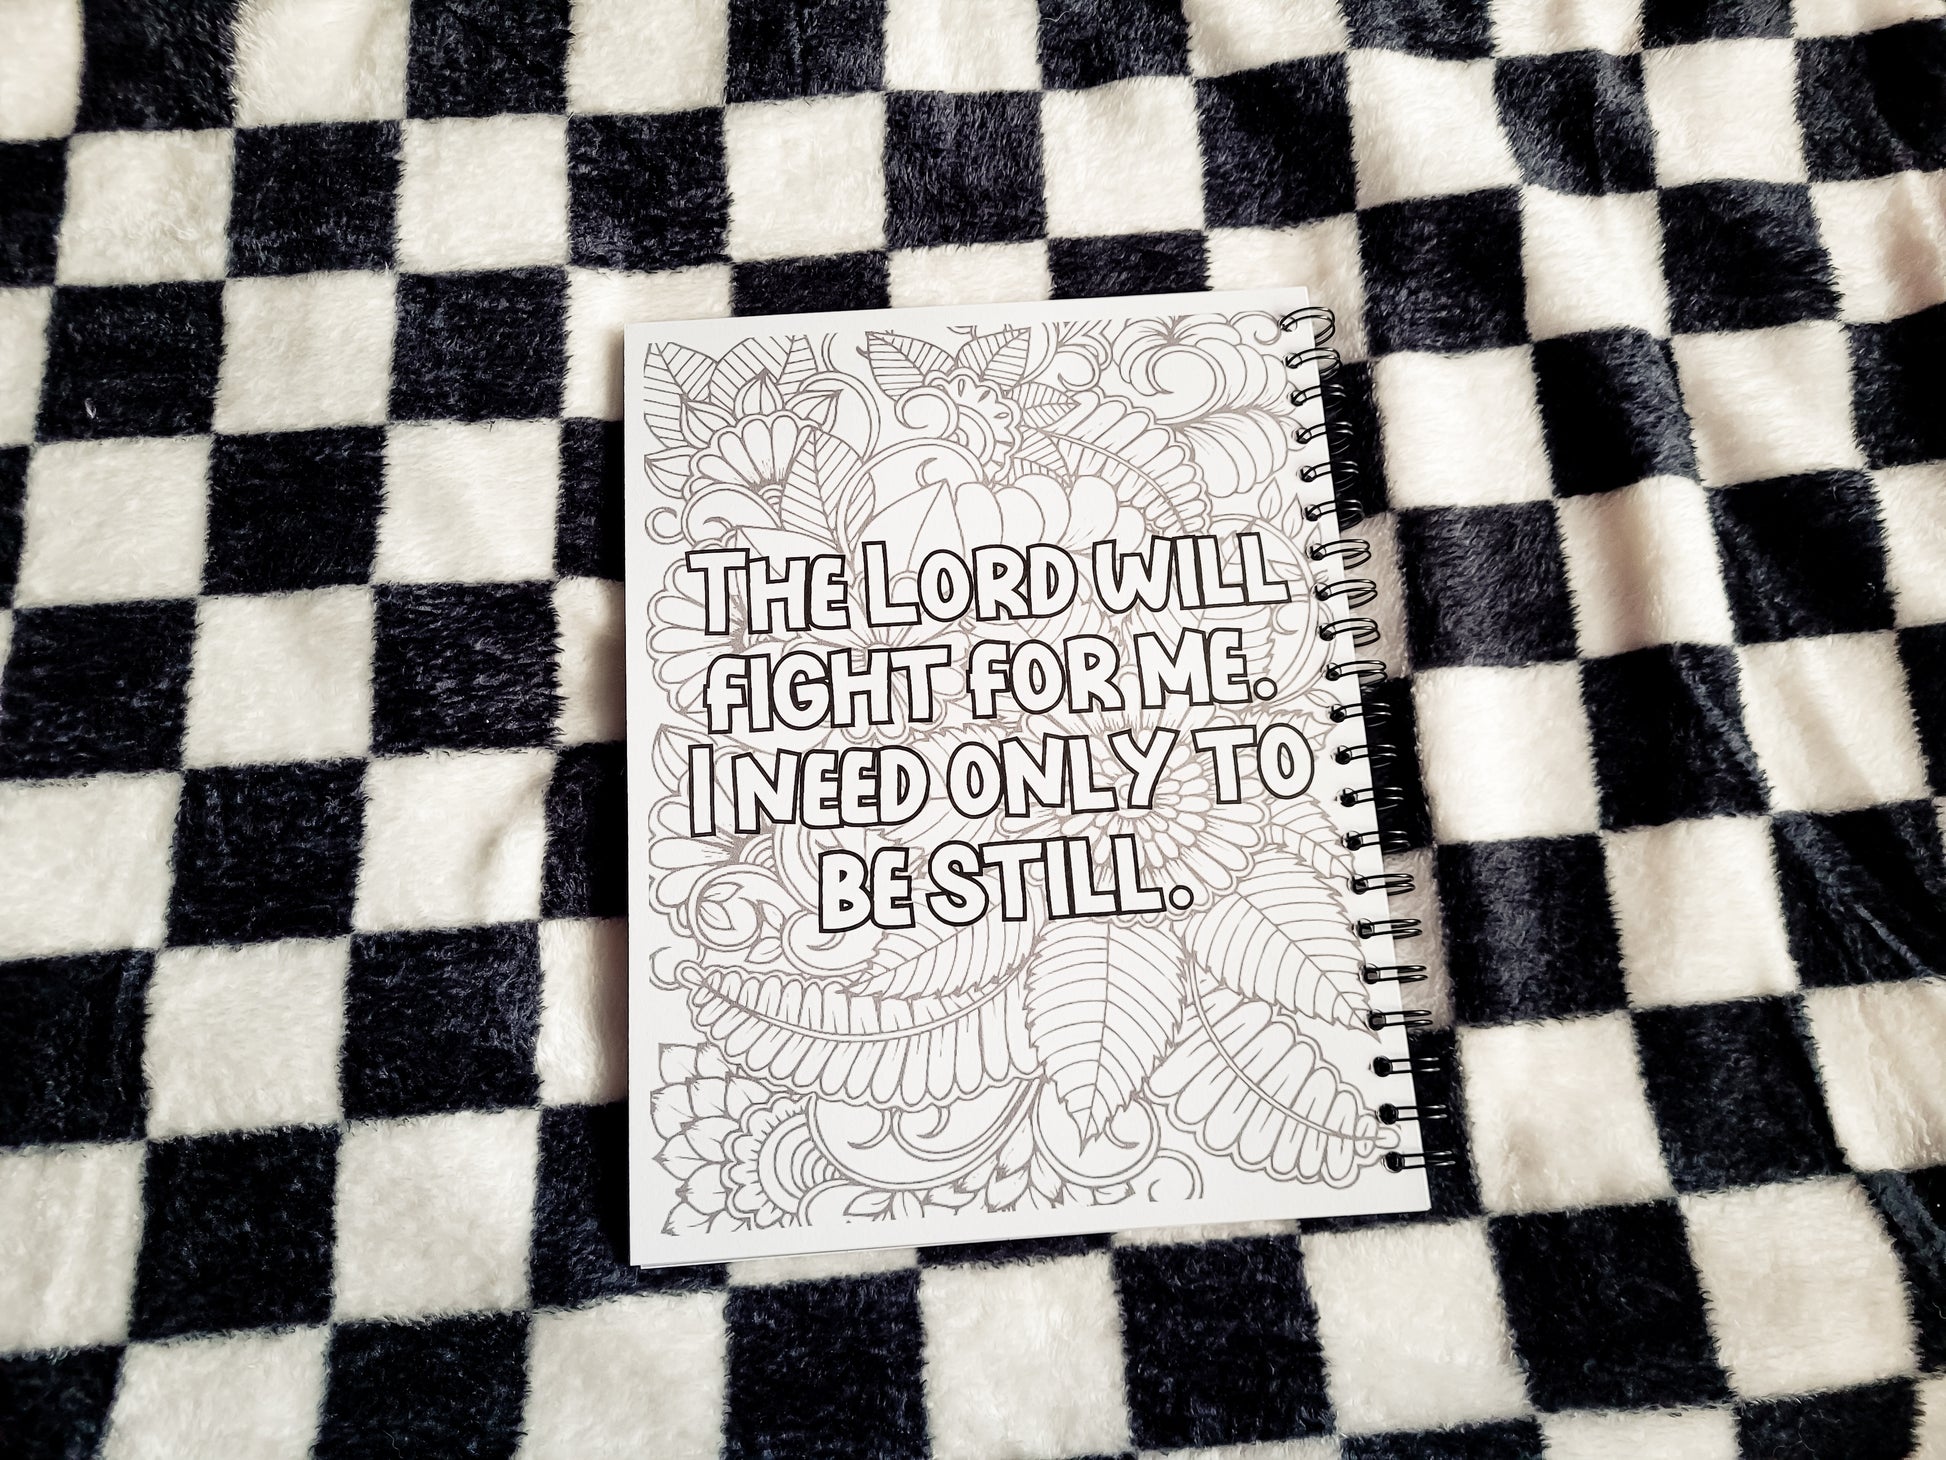 THE LORD WILL
FIGHT FOR ME.
I NEED ONLY TO
BE STILL.